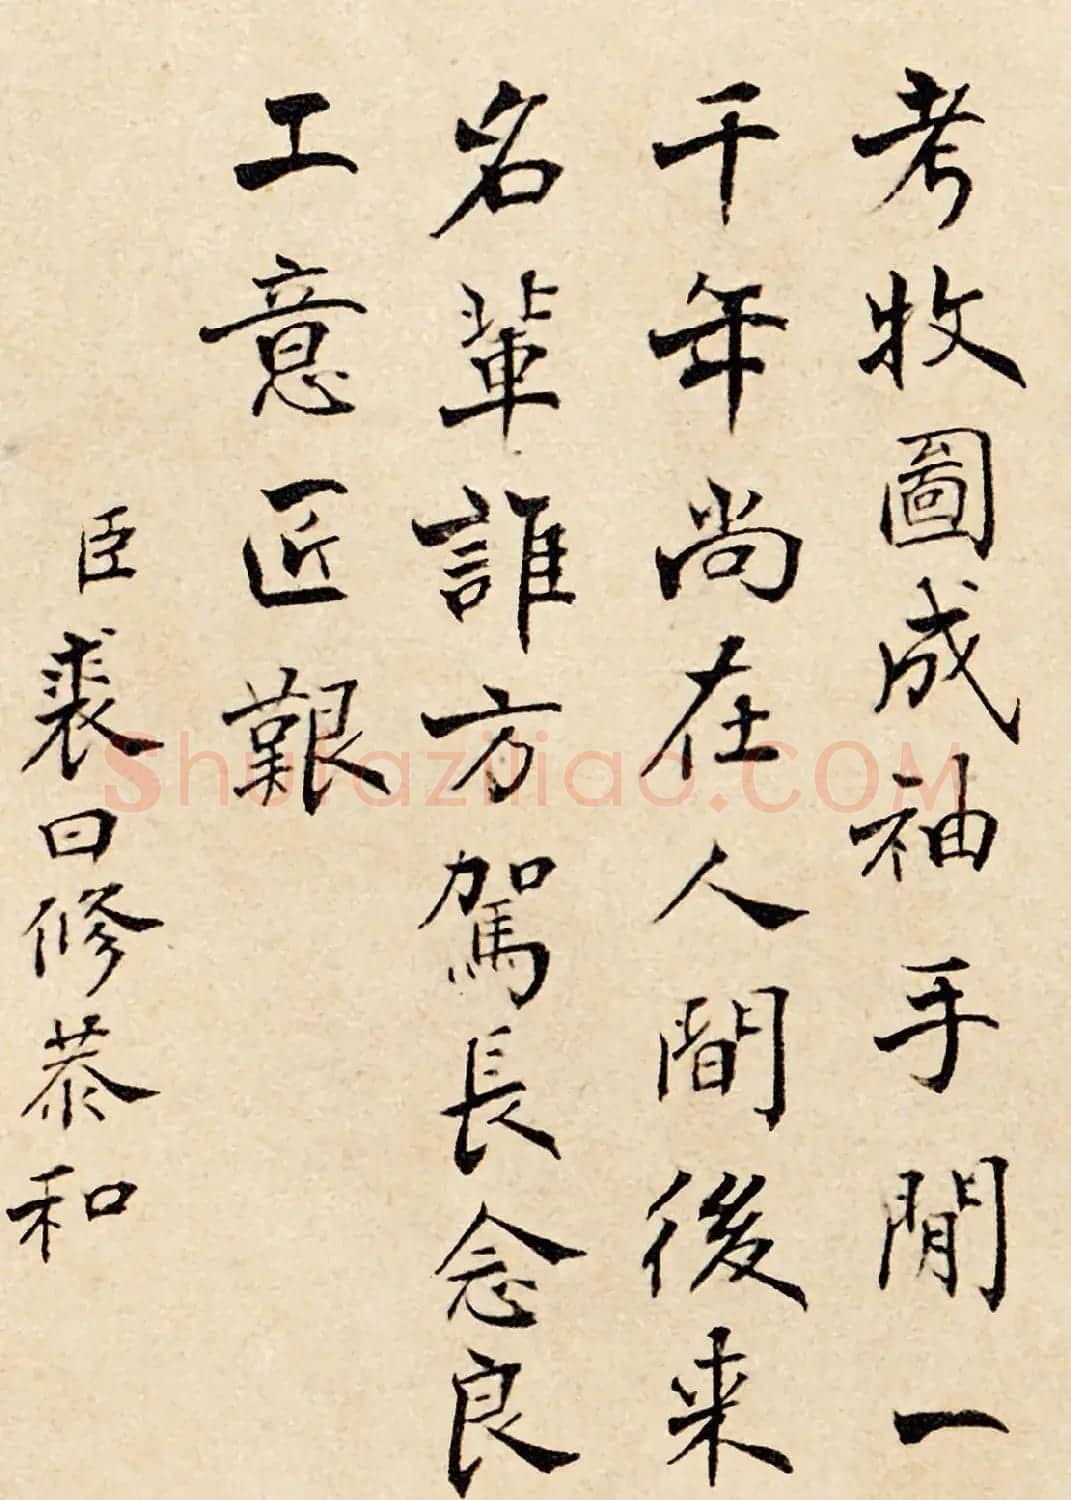 考牧圖成袖手閒一
千年尚在人間後来
名輩誰方駕長念良
工意匠艱
臣裘曰修恭和
Shufaziliao.COM